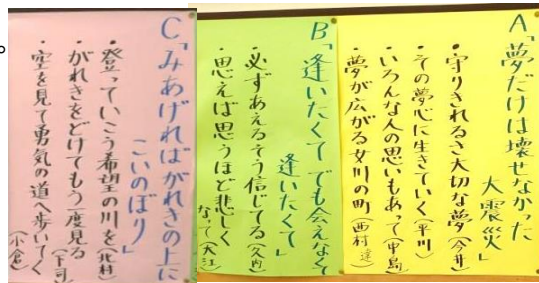 A「夢だけは壊せなかった
大震災」
・守りきれるさ大切な夢(今井)
・その夢心に生きていく(平川)
・いろんな人の思いもあって(中島)
・夢が広がる女川の町(西村達)
B「逢いたくて でも会えなくて
逢いたくて」
・必ずあえるそう信じてる(久内)
・思えば思うほど悲しく
なって(大江)
C「みあげればがれきの上に
こいのぼり」
・登っていこう希望の川を(北村)
・がれきをどけてもう一度見る
(下司)
・空を見て勇気の道へ歩いてく
(小倉)